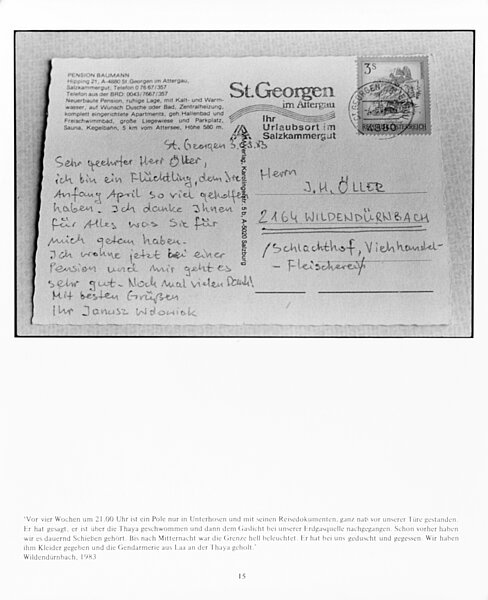 PENSION BAUMANN
Hipping 21, A-4880 St. Georgen im Attergau,
Salzkammergut, Telefon 0 76 67/357
Telefon aus der BRD: 0043/7667/357
Neuerbaute Pension, ruhige Lage, mit Kalt- und Warm-
wasser, auf Wunsch Dusche oder Bad, Zentralheizung,
komplett eingerichtete Apartments, geh. Hallenbad und
Freischwimmbad, große Liegewiese und Parkplatz,
Sauna, Kegelbahn, 5 km vom Attersee, Höhe 580 m.
St. Georgen
im Attergau
Ihr
Urlaubsort im
Salzkammergut
3 S
REPUBLIK ÖSTERREICH
4880
Karolingerstr. 5 b, A-5020 Salzburg
St. Georgen
Sehr geehrter Herr Öller,
ich bin ein Flüchtling, dem Sie
Anfang April so viel geholfen
haben. Ich danke Ihnen
für Alles was Sie für
mich getan haben.
Ich wohne jetzt bei einer
Pension und mir geht es
sehr gut. Noch mal vielen Dank!
Mit besten Grüßen
Ihr Janusz Wdowiak
Herrn
J. H. ÖLLER
2164 WILDENDÜRNBACH
/Schlachthof, Viehhandel-
- Fleischerei/
"Vor vier Wochen um 21.00 Uhr ist ein Pole nur in Unterhosen und mit seinen Reisedokumenten, ganz naß vor unserer Türe gestanden.
Er hat gesagt, er ist über die Thaya geschwommen und dann dem Gaslicht bei unserer Erdgasquelle nachgegangen. Schon vorher haben
wir es dauernd Schießen gehört. Bis nach Mitternacht war die Grenze hell beleuchtet. Er hat bei uns geduscht und gegessen. Wir haben
ihm Kleider gegeben und die Gendarmerie aus Laa an der Thaya geholt."
Wildendürnbach, 1983
15